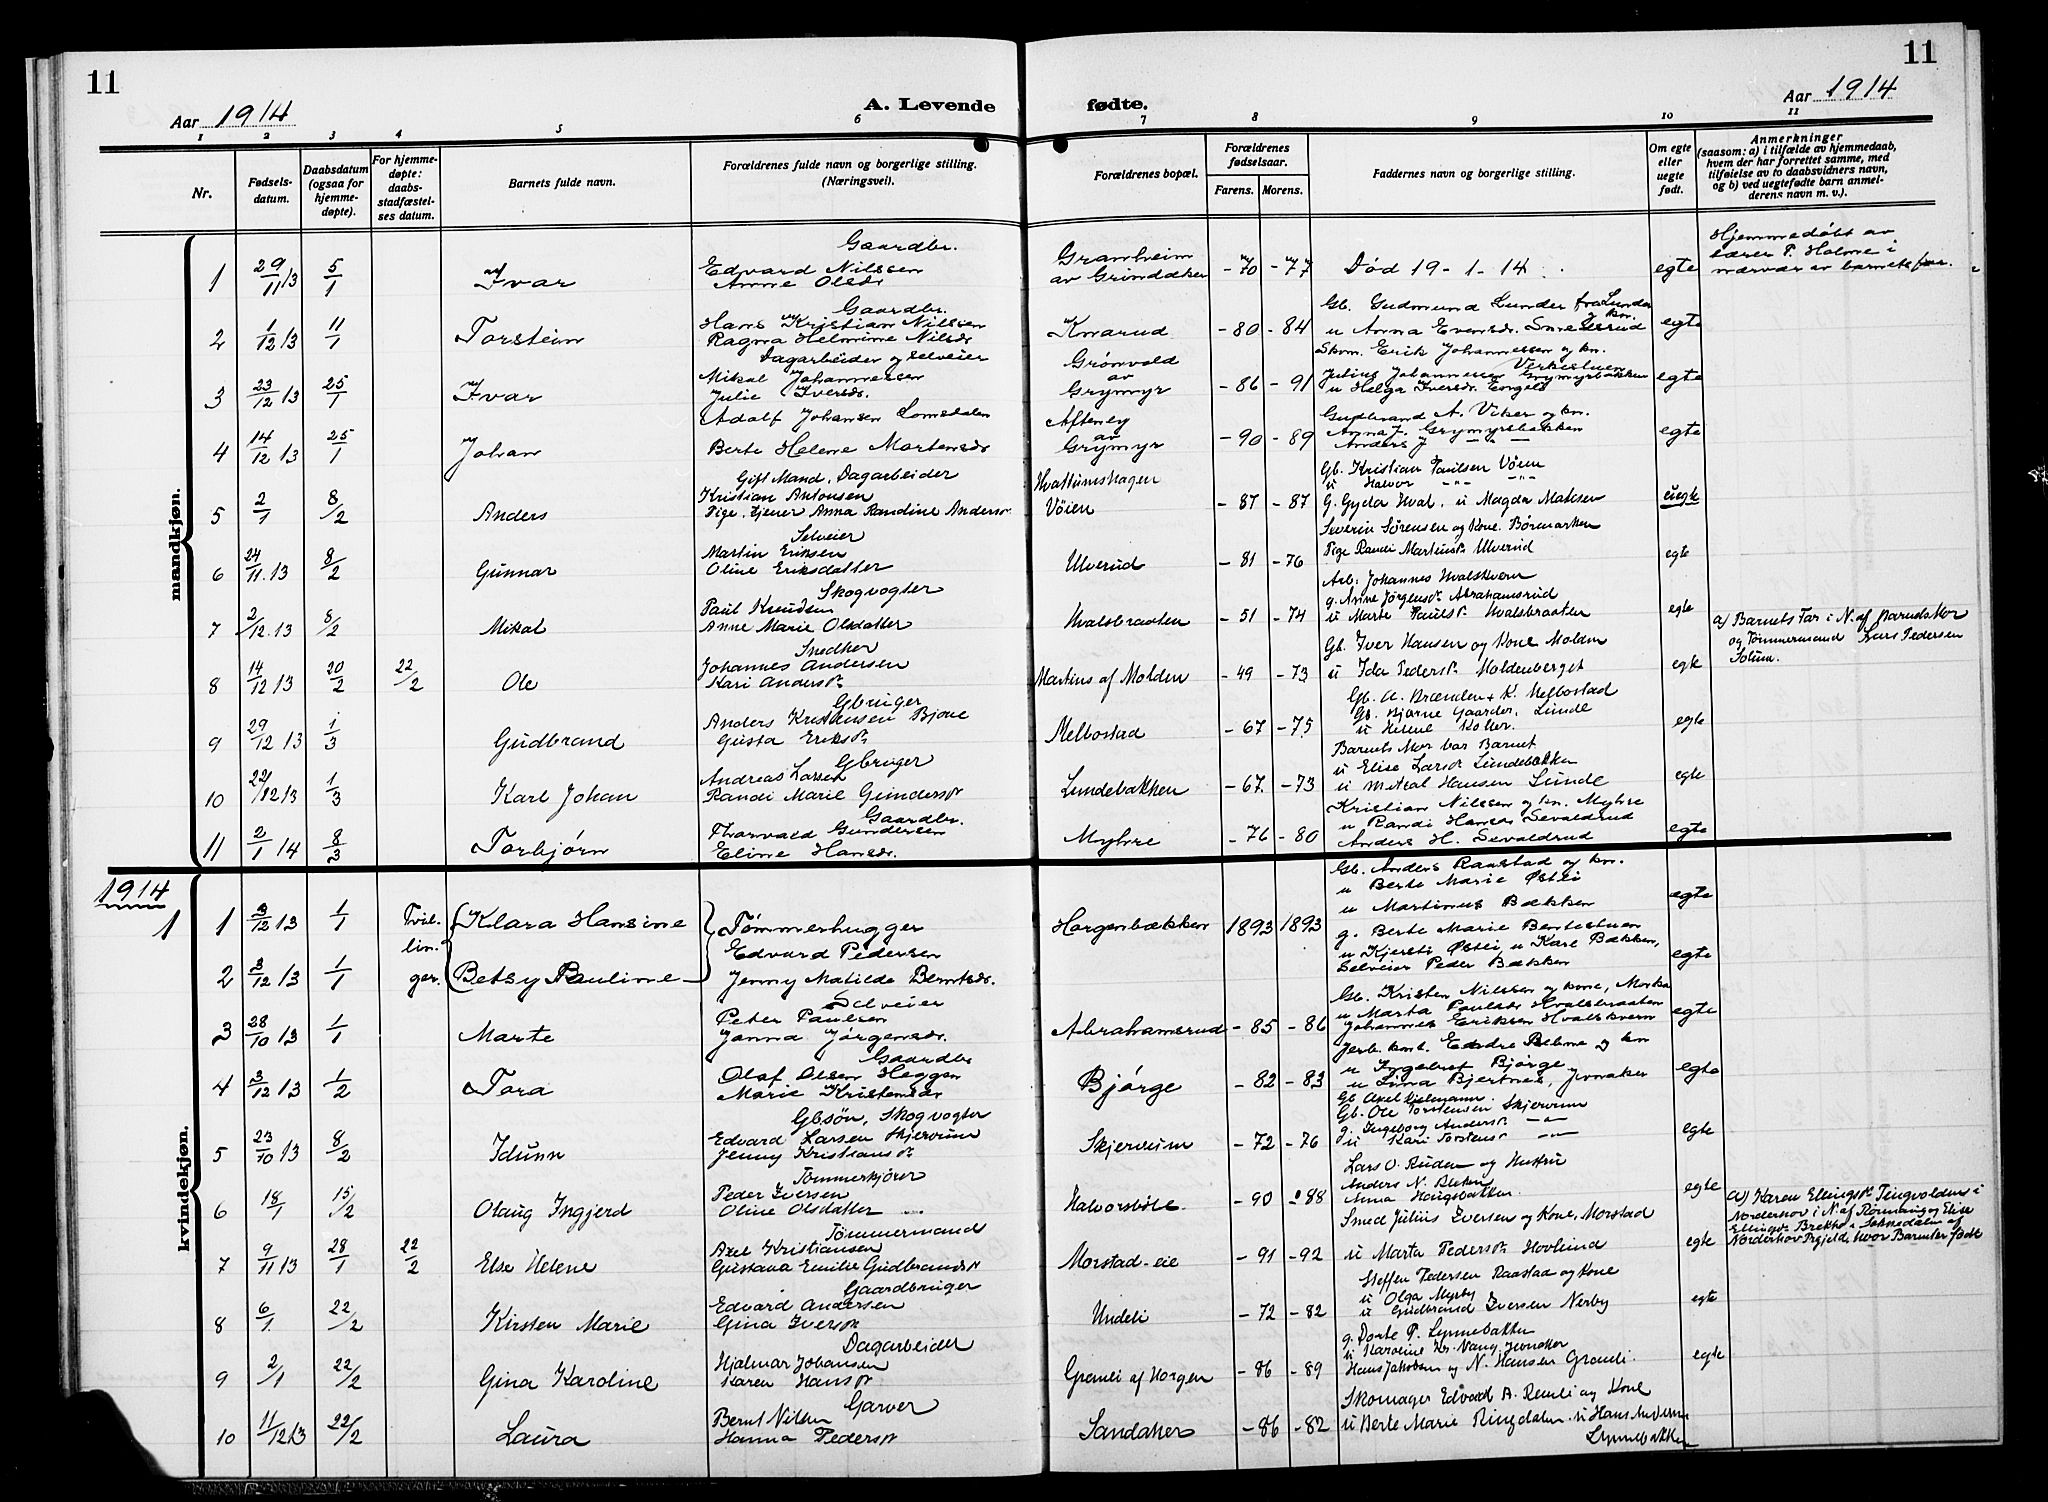 11
11
Aar 1914
A. Levende fødte.
Aar 1914
1 2 3 4 5 6 7 8 9 10 11
Nr.
Fødsels-
datum.
Daabsdatum
(ogsaa for
hjemme-
døpte).
For hjemme-
døpte:
daabs-
stadfæstel-
ses datum.
Barnets fulde navn.
Forældrenes fulde navn og borgerlige stilling.
(Næringsvei).
Forældrenes bopæl.
Forældrenes
fødselsaar.
Farens. Morens.
Faddernes navn og borgerlige stilling.
Om egte
eller
uegte
født.
Anmerkninger
(saasom: a) i tilfælde av hjemmedaab,
hvem der har forrettet samme, med
tilføielse av to daabsvidners navn,
og b) ved uegtefødte barn anmel-
derens navn m. v.).
mandkjøn.
Gaardbr.
1 29/11 13 5/1 Ivar Edvard Nilssen
Anne Olsdr
Granheim
av Grindaker -70 -77 Død 19-1-14. egte
Hjemmedøbt av
lærer P. Holme i
nærvær av barnets far.
Gaardbr.
2 1/12 13 11/1 Torstein Hans Kristian Nilssen
Ragna Helmine Nilsdr
Knarud -80 -84
Gb. Gudmund Lunder fra Lunder
u Anna Evensdr. egte
Dagarbeider og selveier
3 23/12 13 25/1 Ivar Mikal Johannessen
Julie Iversdr.
Grønvold
av
Grymyr -86 -91
Skom. Erik Johannessen og kn.
Julius Johannessen Grymyrbakken
u Helga Iversdr. egte
4 14/12 13 25/1 Johan Adolf Johansen Lomsdalen
Berte Helene Martensdr
Aftenby
av
Grymyr -90 -89
Gudbrand A. Viker og kn.
Anna J. Grymyrbakken
Anders J — — — egte
Gift Mand, Dagarbeider
5 2/1 8/2 Anders Kristian Antonsen
Pige, tjener Anna Randine Andersdr
Hvattumshagen
Vøien -87 -87
Gb. Kristian Paulsen Vøien
u Halvor -"- -"-
G. Gyda Hval, u Magda Madsen uegte
Selveier
6 24/11.13 8/2 Gunnar Martin Eriksen
Oline Eriksdatter
Ulverud -81 -76
Severin Sørensen og Kone. Børmarken
Pige Randi Martinsdr. Ulverud egte
Skogvogter
7 2/12.13 8/2 Mikal Paul Knudsen
Anne Marie Olsdatter
Hvalsbraaten -51 -74
Arb. Johannes Hvalskvern
g. Anne Jørgensdr. Abrahamsrud
u Marte Paulsdr. Hvalsbraaten egte
Snedker
8 14/12 13 20/2 22/2 Ole Johannes Andersen
Kari Andersdr
Martins af Molden -49 -73
Gb. Iver Hansen og Kone Molden
u Ida Pedersdr. Moldenberget egte
a) Barnets Far i N. af Barnets Mor
og Tømmermand Lars Pedersen
Solum.
Gbruger
9 29/12 13 1/3 Gudbrand Anders Kristiansen Bjone
Gusta Eriksdr.
Melbostad -67 -75
Gb. A. Brænden + K. Melbostad
Gb. Bjarne Gaarder. Lunde
u Helene Koller. egte
Gbruger
10 22/12 13 1/3 Karl Johan Andreas Larsen
Randi Marie Gundersdr
Lundebakken -67. -73
Barnets Mor bar Barnet
u Elise Larsdr Lundebakken
u Metral Hansen Lunde egte
Gaardbr.
11 2/1 14 8/3 Torbjørn Thorvald Gundersen
Eline Hansdr.
Myhre -76 -80
Kristian Nilssen og kn. Myhre
u Randi Hansdr Sevaldrud
Anders H. Sevaldrud egte
1914
kvindekjøn.
1 1 3/12 13 1/1 Tvil- Klara Hansine
Tømmerhugger
Horgenbakken 1893 1893
Gb. Anders Raastad og kn.
u Berte Marie Østei
u Martinus Bækken egte
lin-
2 3/12 13 1/1 ger. Betsy Pauline
Edvard Pedersen
Jenny Matilde Berntsdr.
g. Berte Marie Bentestuen
u Kjersti Østei, u Karl Bækken,
Selveier Peder Bækken egte
Selveier
3 28/10 13 1/1 Marte Peter Paulsen
Janna Jørgensdr.
Abrahamsrud -85 -86
Gb. Kristen Nilssen og kone,
u Marta Paulsdr Hvalsbraaten
Johannes Eriksen Hvalskvern egte
Gaardbr
4 3/12 13 1/2 Tora Olaf Olsen Heggen
Marie Kristensdr
Bjørge -82 -83
u Ingeborg Bjørge
u Lina Bjertnes, Jevnaker
Gb. Axel egte
Gbsøn, Skogvogter
5 23/10 13 8/2 Idunn Edvard Larsen Skjervum
Jenny Kristiansdr
Skjervum -72 -76
Gb. Ole Torstensen Skjervum
g. Ingeborg Andersdr. -"-
u Kari Torstensdr -"- egte
Tømmerkjører
6 18/1 15/2 Olaug Ingjerd Peder Iversen
Oline Olsdatter
Halvorsbøle -90 -88
Lars O. Ruden og Hustru
Anders N.
Anna Haugsbakken. egte
Tømmermand
7 9/11 13 28/1 22/2 Else Helene Axel Kristiansen
Gustava Emilie Gudbrandsdr
Morstad-eie -91 -92
Smed Julius Iversen og Kone, Morstad
u Marta Pedersdr. Hovlund egte
a) Karen Ellingsdr. Tingvoldens i
Norderhov i N. af Rønnaug og Elise
Ellingsdr. Brekke i Soknedalen af
Norderhov Prgjeld, hvor Barnet er født
Gaardbruger
8 6/1. 22/2 Kirsten Marie Edvard Andersen
Gina Iversdr
Undeli -72 -82
Steffen Pedersen Raastad og Kone
u Olga Myrby
u Gudbrand Iversen Nerby egte
Dagarbeider
9 2/1 22/2 Gina Karoline Hjalmar Johansen
Karen Hansdr
Granli af Horgen -86 -89
g. Dorte P. Lynnebakken
u Karoline Kr. Vang, Jevnaker
Hans Jakobsen og N. Hansen Granli. egte
Garver
10 11/12 13 22/2 Laura Bernt Nilsen
Hanna Pedersdr
Sandaker -86 -82
Skomager Edvard A. Remli og Kone
u Berte Marie Ringdalen. u Hans
Lynnebakken